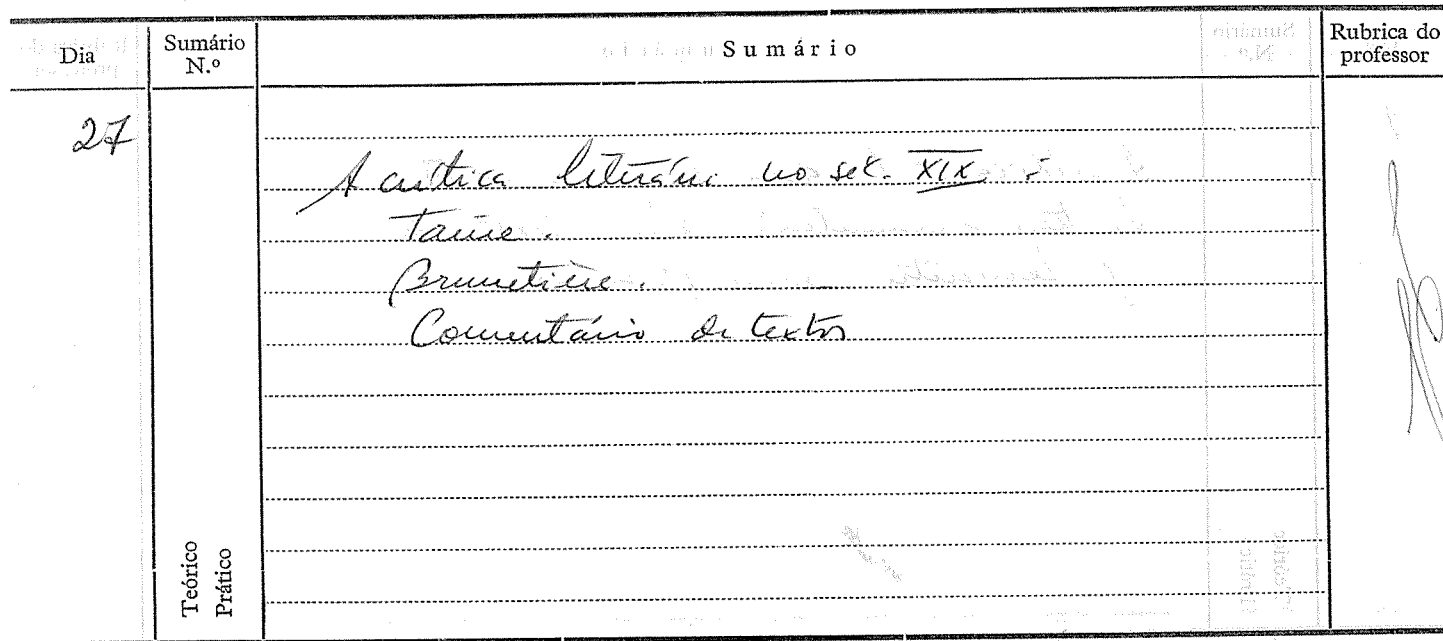 Dia
Sumário N.º
Sumário
Rubrica do professor
27
A crítica literária no séc. XIX :
Taine.
Brunetière.
Comentário de textos
Teórico
Prático